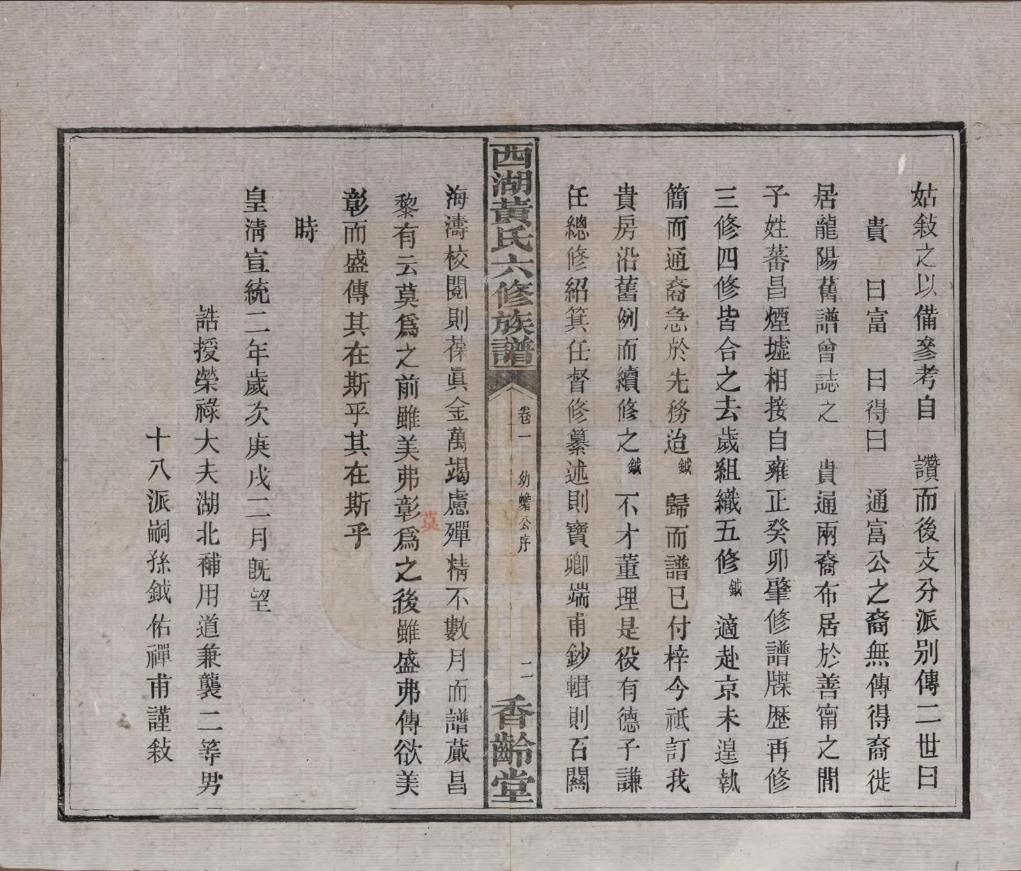 姑敍之以備參考自　讚而後支分派別傳二世曰
貴　曰富　曰得曰　通富公之裔無傳得裔徙
居龍陽舊譜曾誌之　貴通兩裔布居於善甯之閒
子姓蕃昌煙墟相接自雍正癸卯肇修譜牒歷再修
三修四修皆合之去歲組織五修鉞適赴京未遑執
簡而通裔急於先務迨鉞歸而譜已付梓今祇訂我
貴房沿舊例而續修之鉞不才董理是役有德子謙
任總修紹箕任督修纂述則寶卿端甫鈔輯則石闗
西湖黃氏六修族譜
卷一
幼蟾公序
二
香齡堂
海濤校閱則葆眞金萬竭慮殫精不數月而譜蕆昌
黎有云莫爲之前雖美弗彰爲之後雖盛弗傳欲美
莫
彰而盛傳其在斯乎其在斯乎
時
皇淸宣統二年歲次庚戌二月旣望
誥授榮祿大夫湖北補用道兼襲二等男
十八派嗣孫鉞佑禪甫謹敍